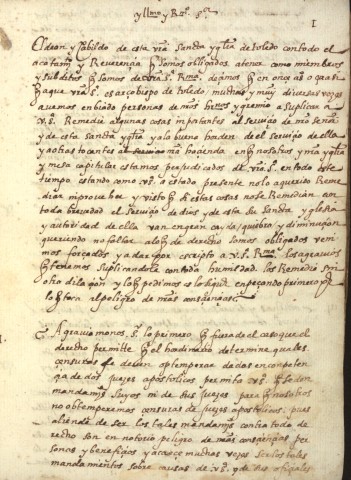 yllmo y Rmo Sor
1
El dean y cabildo de esta vra Sancta ygla de toledo con todo el
acatamto y Reverençia q somos obligados a tener como miembros
y subditos q somos de vra S. Rma deçimos q en onçe años o quasi
ha que vra S. es arçobispo de toledo, muchas y muy diversas vezes
avemos enbiado personas de nros hermos y gremio a suplicar a
v.S. Remedie algunas cosas inportantes al serviçio de nro señor
y de esta Sancta ygla y al buen horden de el serviçio de ella
y otras tocantes a la hazienda en q nosotros y nra ygla
y mesa capitular estamos perjudicados de vra S. en todo este
tiempo estando como v.S. a estado presente no lo a querido Reme
diar in proveher y visto q si estas cosas no se Remedian con
toda brevedad el serviçio de dios y de esta su Sancta yglesia
y autoridad de ella van en gran cayda quiebra y diminuçion
queriendo no faltar a lo q de derecho somos obligados veni
mos forçados y a dar por escripto a v.S. Rma los agravios
q tenemos suplicandole con toda humildad los Remedie sin
otra dilaçion y lo q pedimos es lo sigte enpeçando primero por
lo q toca al peligro de nras consçiençias
Agraviamonos S. lo primero q fuera de el caso que el
derecho permitte q el hordinario determine quales
censuras se deven optemperar de dos en conpeten
çia de dos juezes apostolicos permite v.S. q se den
mandamtos suyos ni de sus juezes para q nosotros
no obtemperemos censuras de juezes apostolicos, pues
allende de ser los tales mandamtos contra todo de
recho son en notorio peligro de nras consçiençias per
sonas y benefiçios y acaeçe muchas vezes ser los tales
mandamientos sobre causas de v.S. y de sus ofiçiales